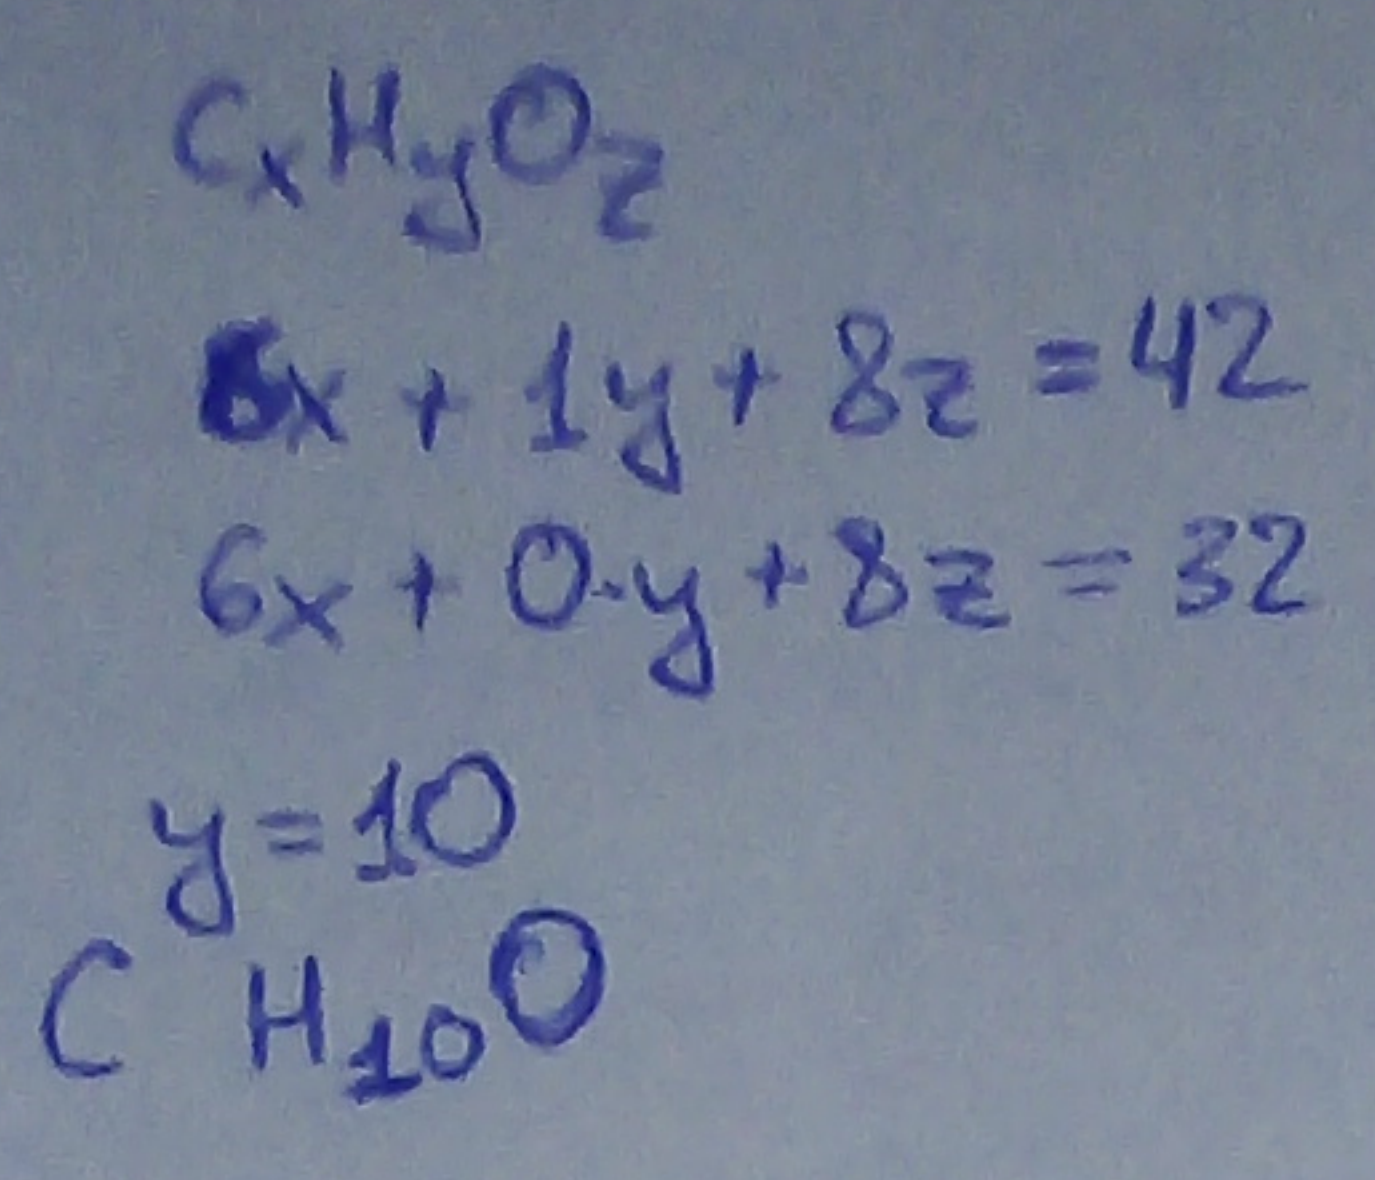 CxHyOz
6x + 1y + 8z = 42
6x + 0·y + 8z = 32
y = 10
C H10O